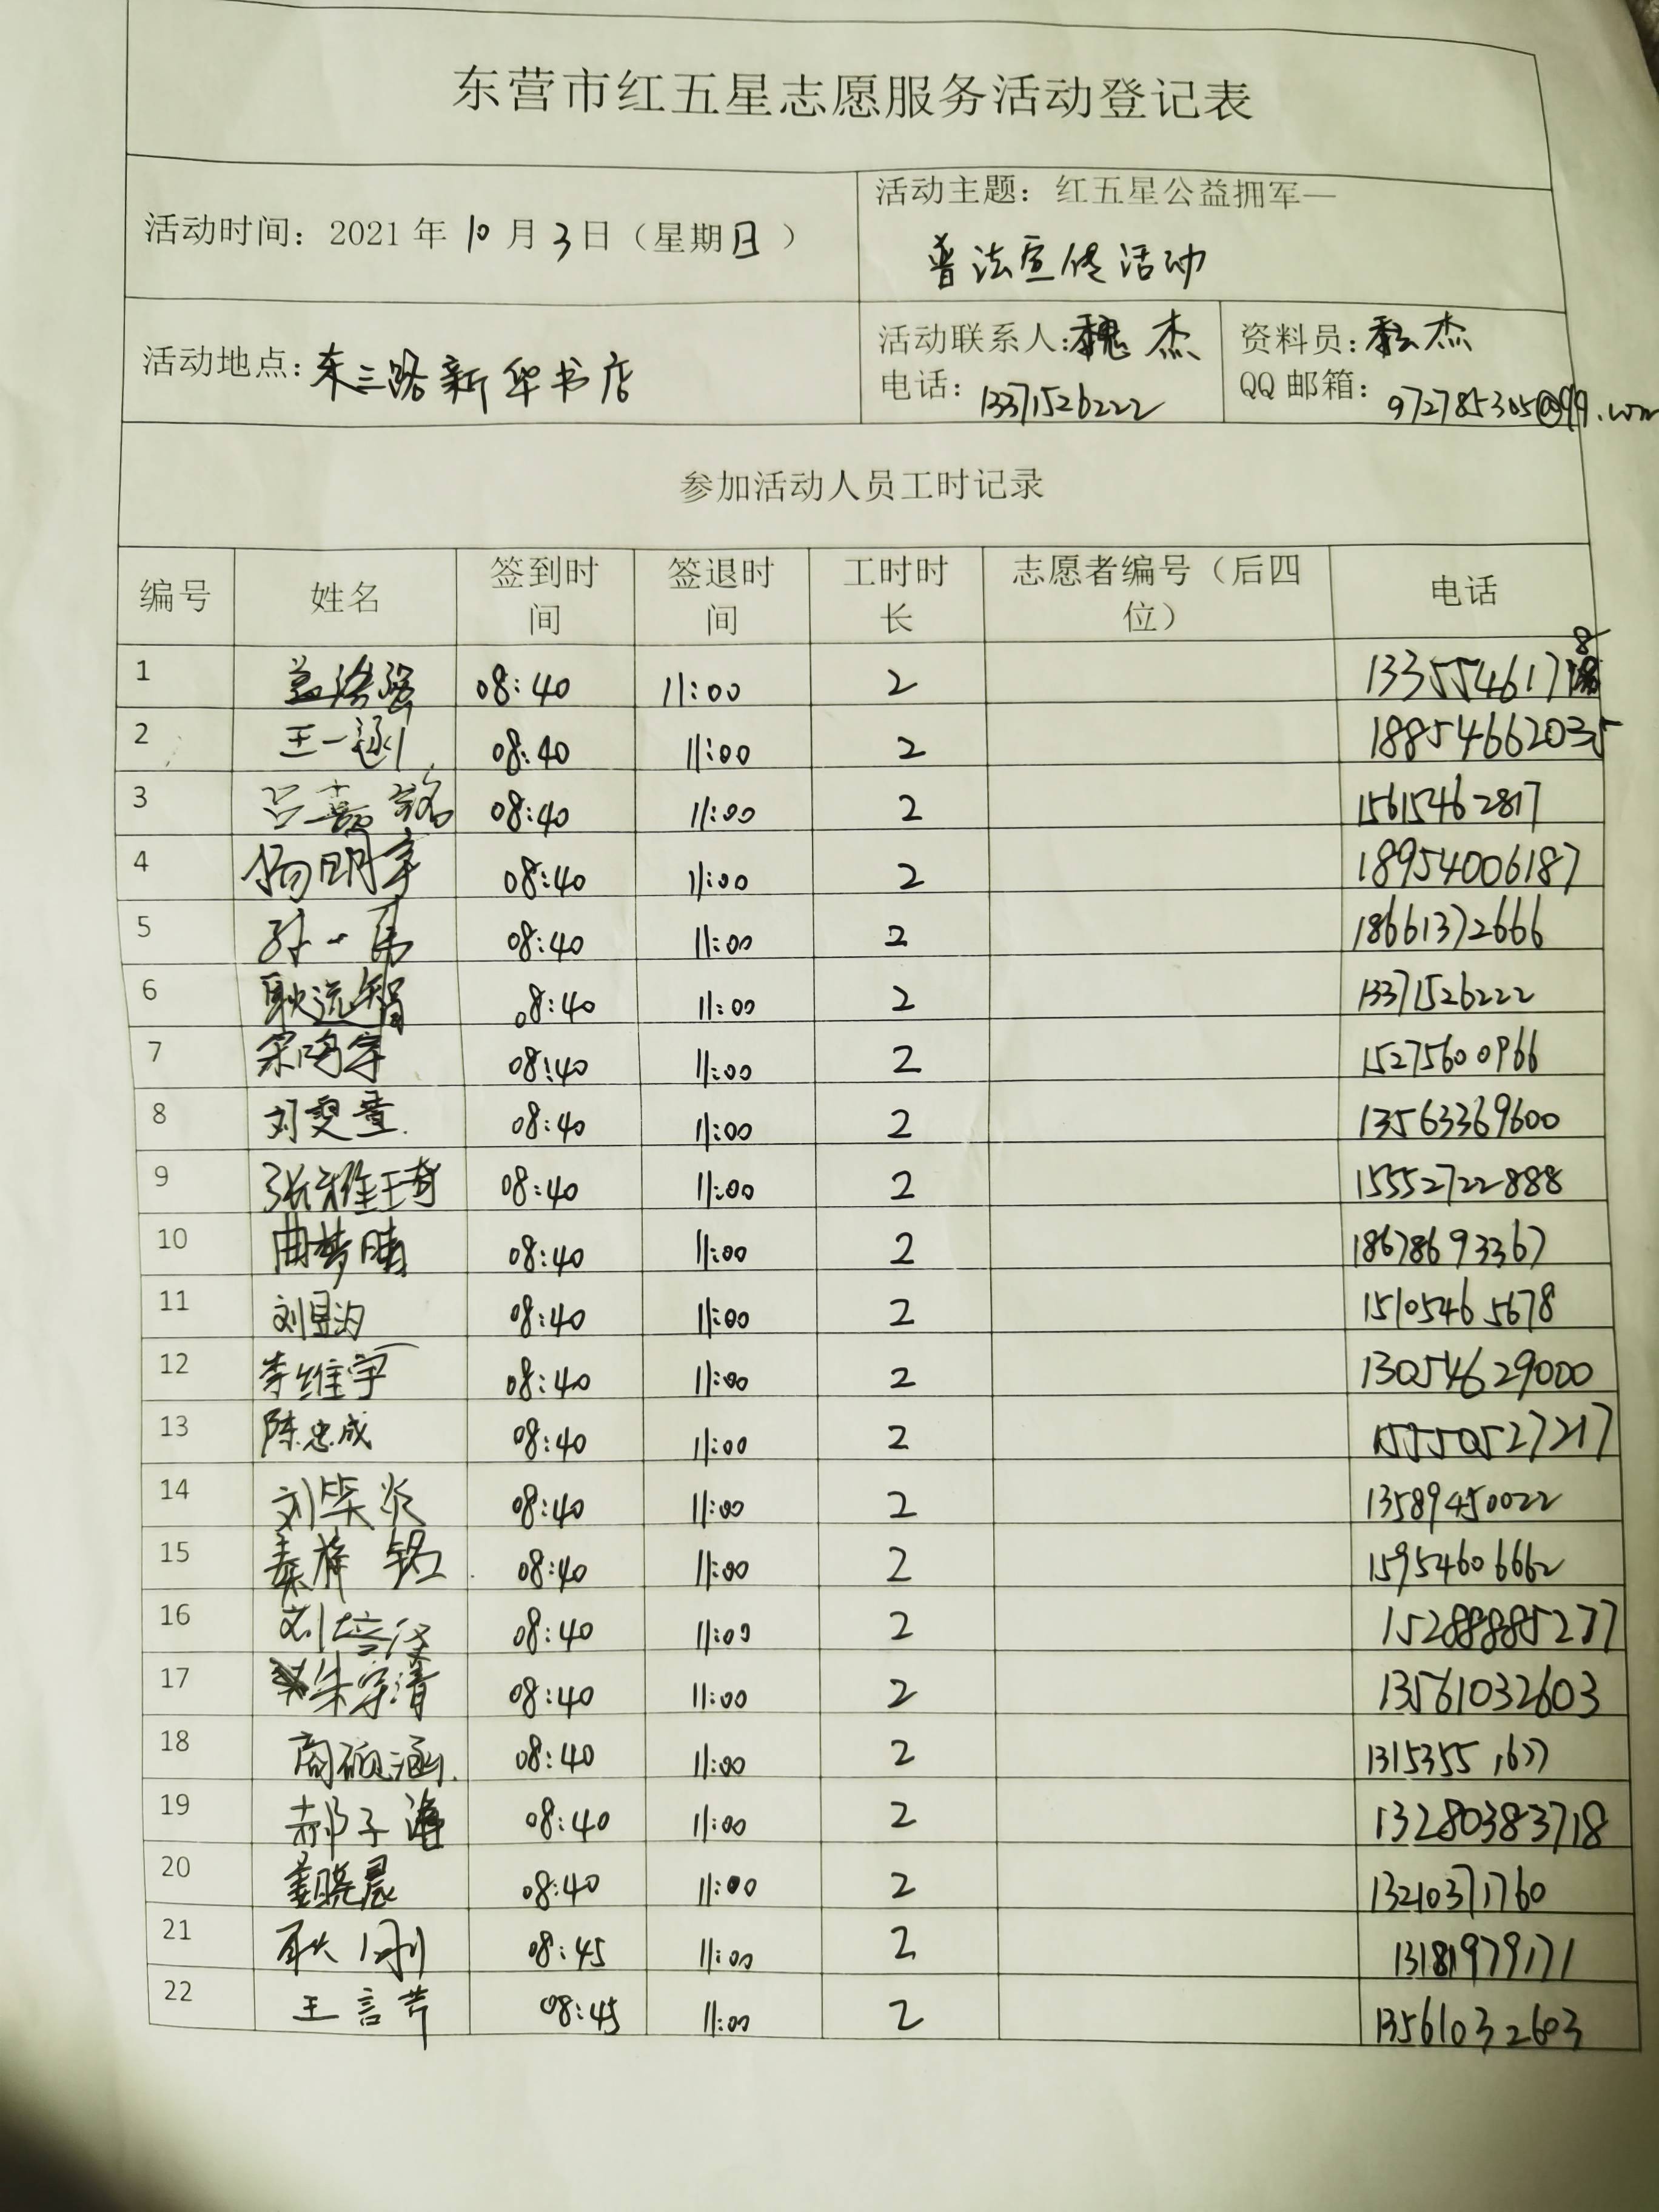 东营市红五星志愿服务活动登记表
活动时间：2021年10月3日（星期日）
活动主题：红五星公益拥军—
普法宣传活动
活动地点：东三路新华书店
活动联系人：魏杰
电话：13371526222
资料员：魏杰
QQ邮箱：972785305@qq.com
参加活动人员工时记录
编号 姓名 签到时间 签退时间 工时时长 志愿者编号（后四位） 电话
1 08:40 11:00 2 13355461718
2 王一涵 08:40 11:00 2 18854662035
3 吕嘉铭 08:40 11:00 2 15615462817
4 杨明宇 08:40 11:00 2 18954006187
5 孙一 08:40 11:00 2 18661372666
6 耿远智 08:40 11:00 2 13371526222
7 宋鸣宇 08:40 11:00 2 15275600966
8 刘雯萱 08:40 11:00 2 13563369600
9 张雅琦 08:40 11:00 2 15552722888
10 曲梦晴 08:40 11:00 2 18678693367
11 刘昱汐 08:40 11:00 2 15105465678
12 李维宇 08:40 11:00 2 13054629000
13 陈忠成 08:40 11:00 2 15550527217
14 刘毕炎 08:40 11:00 2 13589450022
15 铭 08:40 11:00 2 15954606662
16 刘培汉 08:40 11:00 2 15288885277
17 朱宇清 08:40 11:00 2 13561032603
18 周砚涵 08:40 11:00 2 13153551677
19 郝子海 08:40 11:00 2 13280383718
20 姜晓晨 08:40 11:00 2 13210371760
21 耿 08:45 11:00 2 13181979171
22 王言芹 08:45 11:00 2 13561032603